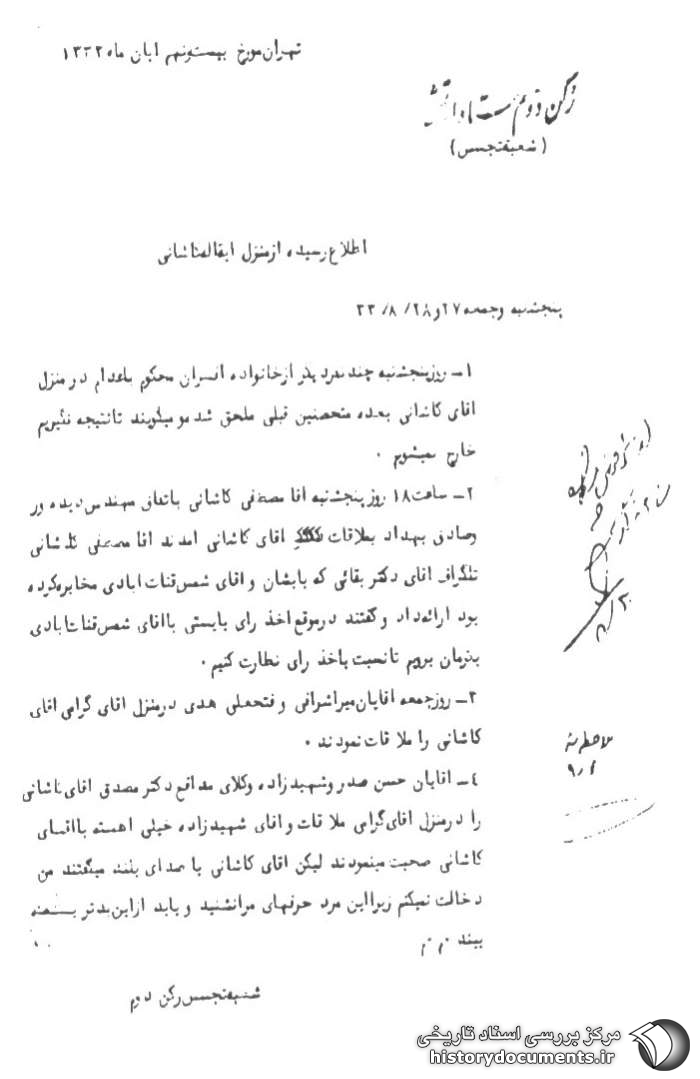 تهران مورخ بیست و نهم ابان ماه ۱۳۳۳
رکن دوم ستاد ارتش
(شعبه تجسس)
اطلاع رسیده از منزل ایة اله کاشانی
پنجشنبه و جمعه ۲۷ و ۲۸/ ۸/ ۳۳
۱ـ روز پنجشنبه چند نفر دیگر از خانواده افسران محکوم باعدام در منزل
اقای کاشانی بعده متحصنین قبلی ملحق شد و میگویند تا نتیجه نگیریم
خارج نمیشویم .
۲ـ ساعت ۱۸ روز پنجشنبه اقا مصطفی کاشانی باتفاق مهندس دیده ور
وصادق بهداد بملاقات اقای کاشانی امدند اقا مصطفی کاشانی
تلگراف اقای دکتر بقائی که بایشان و اقای شمس قنات ابادی مخابره کرده
بود ارائه داد و گفتند در موقع اخذ رای بایستی با اقای شمس قنات ابادی
بکرمان برویم تا نسبت باخذ رای نظارت کنیم .
۳ـ روز جمعه اقایان میراشرافی و فتحعلی هدی در منزل اقای گرامی اقای
کاشانی را ملاقات نمودند .
٤ـ اقایان حسن صدر و شهیدزاده وکلای مدافع دکتر مصدق اقای کاشانی
را در منزل اقای گرامی ملاقات و اقای شهیدزاده خیلی اهسته با اقای
کاشانی صحبت مینمودند لیکن اقای کاشانی با صدای بلند میگفتند من
دخالت نمیکنم زیرا این مرد حرفهای مرا نشنید و باید از این بدتر
ببیند
شعبه تجسس رکن دوم
ملاحظه شد
۹/۶
مرکز بررسی اسناد تاریخی
historydocuments.ir